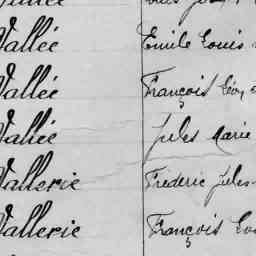 Vallée Emile Louis
Vallée François Léon
Vallée Jules Marie
Vallerie Frédéric Jules
Vallerie François